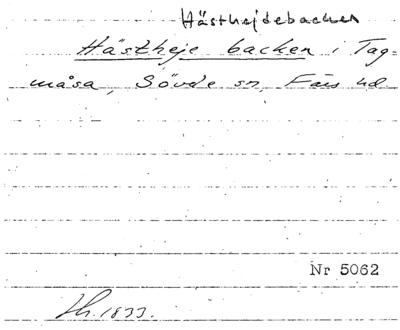 Hästhejdebacken
Hästheje backen i Tag=
måsa, Sövde sn, Färs hd
Nr 5062
Lh. 1833.